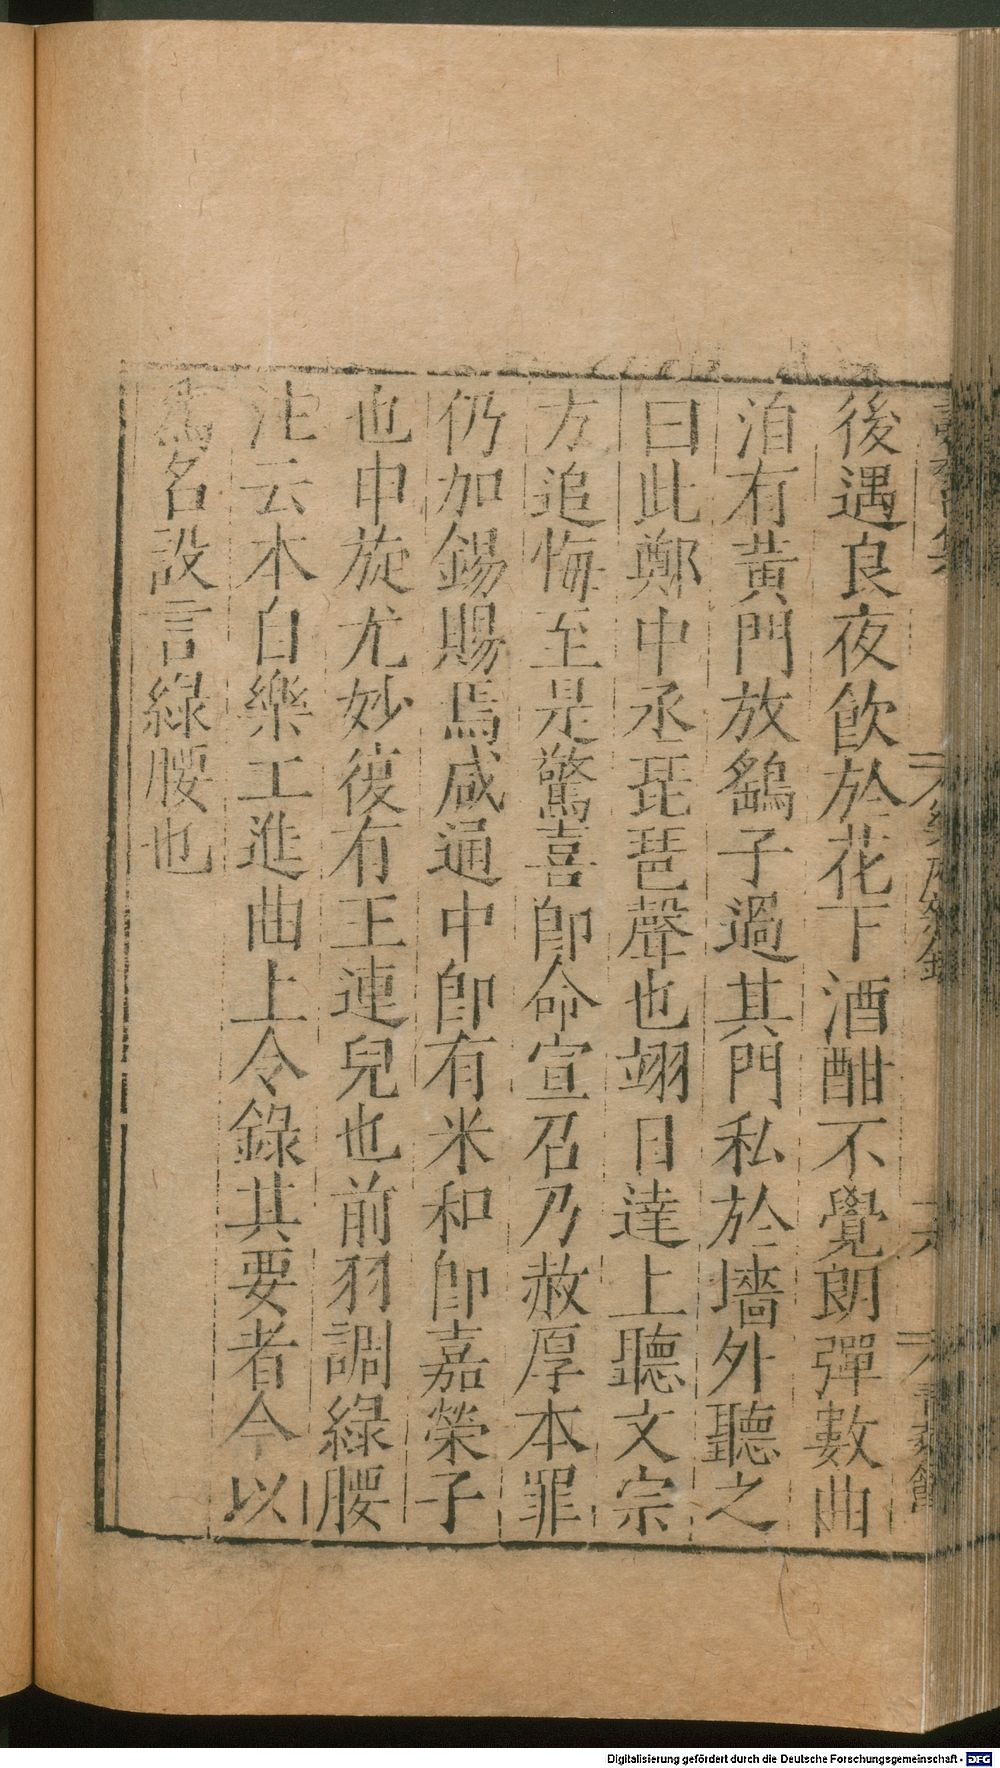 後遇良夜飲於花下酒酣不覺朗彈數曲
洎有黃門放鷂子過其門私於墻外聽之
曰此鄭中丞琵琶聲也翊日達上聽文宗
方追悔至是驚喜卽命宣召乃赦厚本罪
仍加錫賜焉咸通中卽有米和卽嘉榮子
也申旋尤妙復有王連兒也前羽調綠腰
注云本自樂工進曲上令錄其要者今以
爲名設言綠腰也
Digitalisierung gefördert durch die Deutsche Forschungsgemeinschaft - DFG